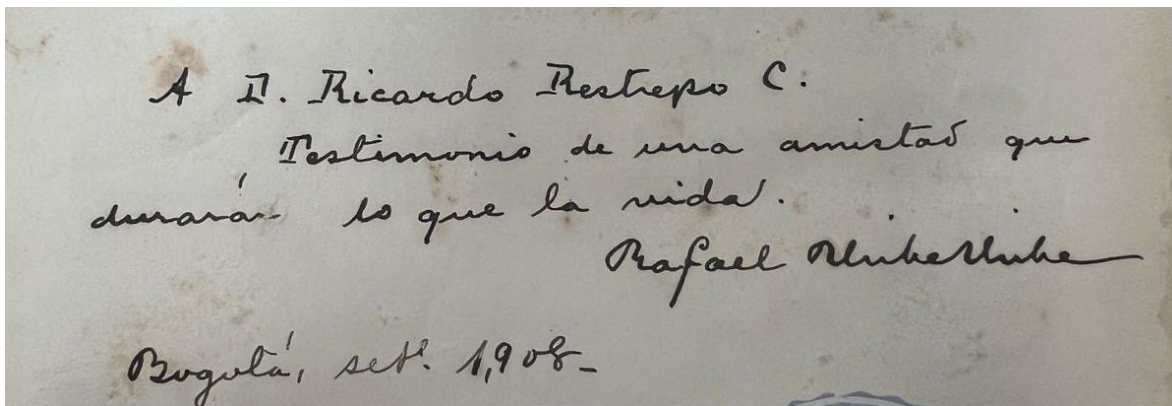 A D. Ricardo Restrepo C.
Testimonio de una amistad que
durará lo que la vida.
Rafael Uribe Uribe
Bogotá, setᵉ. 1,908-